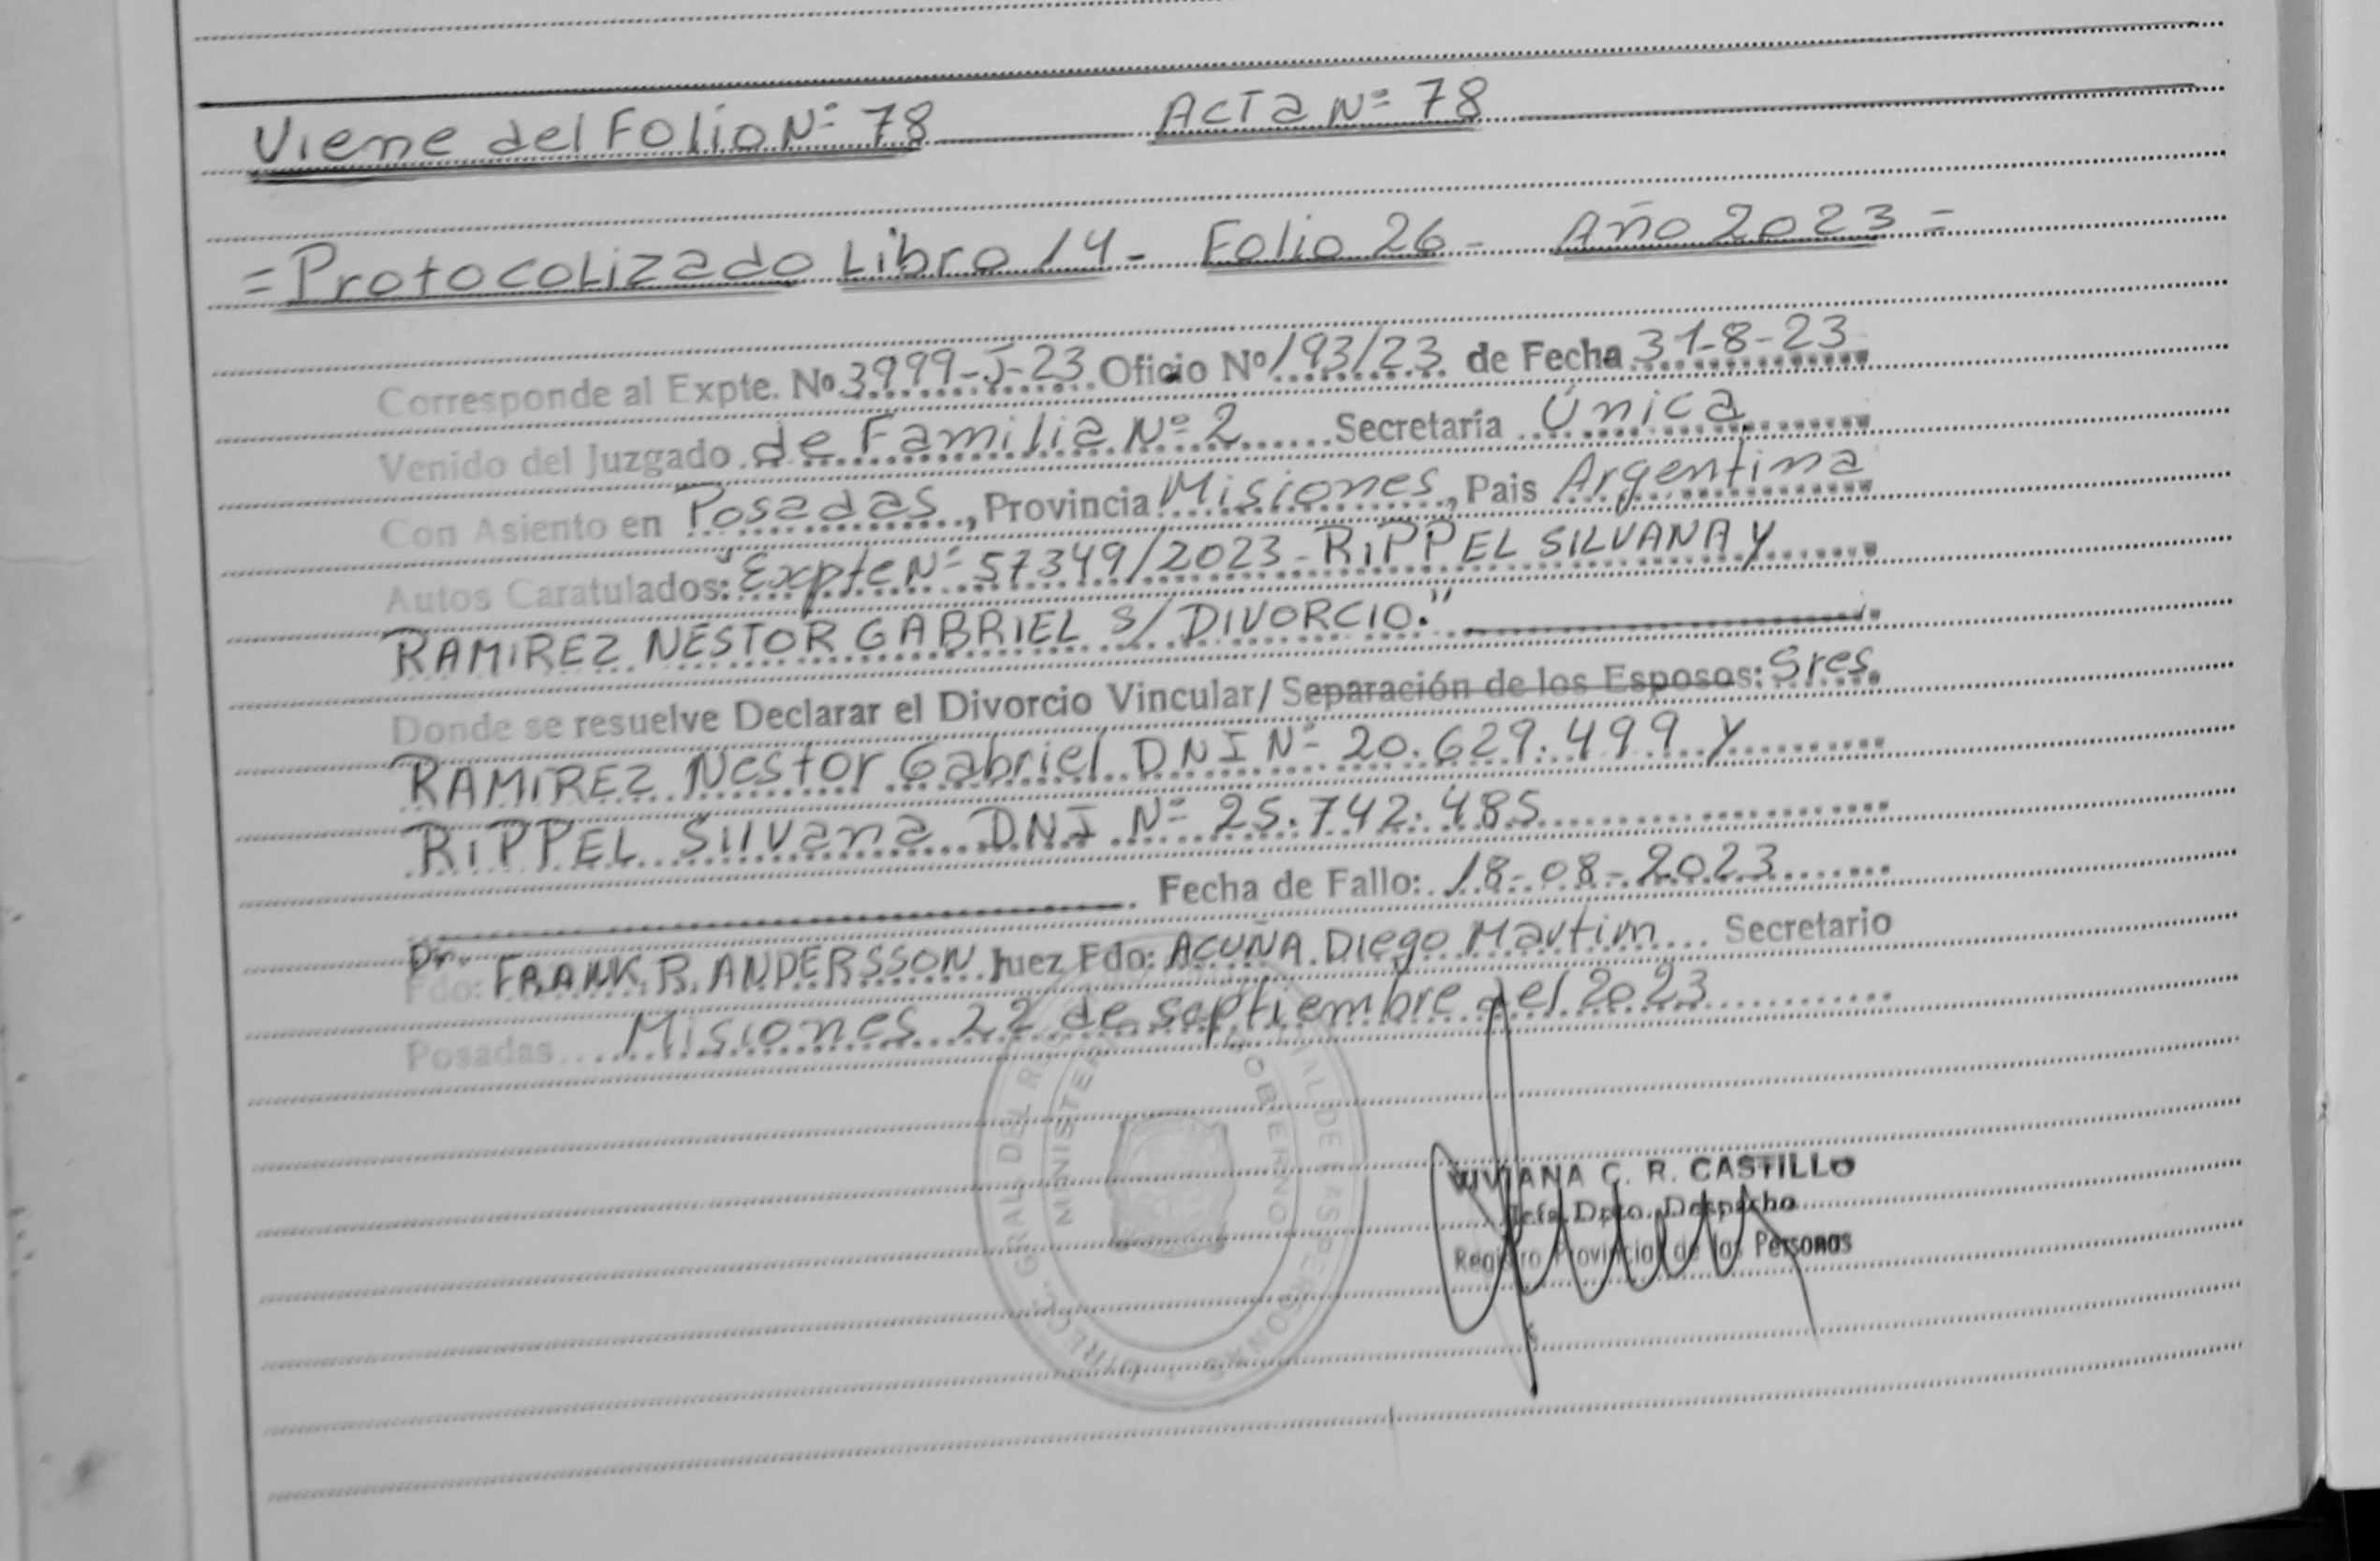 Viene del Folio Nº 78 Acta Nº 78
= Protocolizado Libro 14 - Folio 26 - Año 2023 =
Corresponde al Expte. Nº 3999-J-23 Oficio Nº 193/23 de Fecha 31-8-23
Venido del Juzgado de Familia Nº 2 Secretaría Única
Con Asiento en Posadas, Provincia Misiones, Pais Argentina
Autos Caratulados: "Expte Nº 57349/2023 - RIPPEL SILVANA Y
RAMIREZ NESTOR GABRIEL S/ DIVORCIO."
Donde se resuelve Declarar el Divorcio Vincular/ Separación de los Esposos: Sres.
RAMIREZ Nestor Gabriel DNI Nº 20.629.499 y
RIPPEL Silvana DNI Nº 25.742.485
Fecha de Fallo: 18-08-2023
Dr.
Fdo: FRANK R. ANDERSSON Juez Fdo: ACUÑA Diego Martin Secretario
Posadas Misiones 22 de septiembre del 2023
VIVIANA C. R. CASTILLO
Jefa Dpto. Despacho
Registro Provincial de las Personas
DIRECC. GRAL. DEL DE LAS PERSONAS
MINISTER GOBIERNO